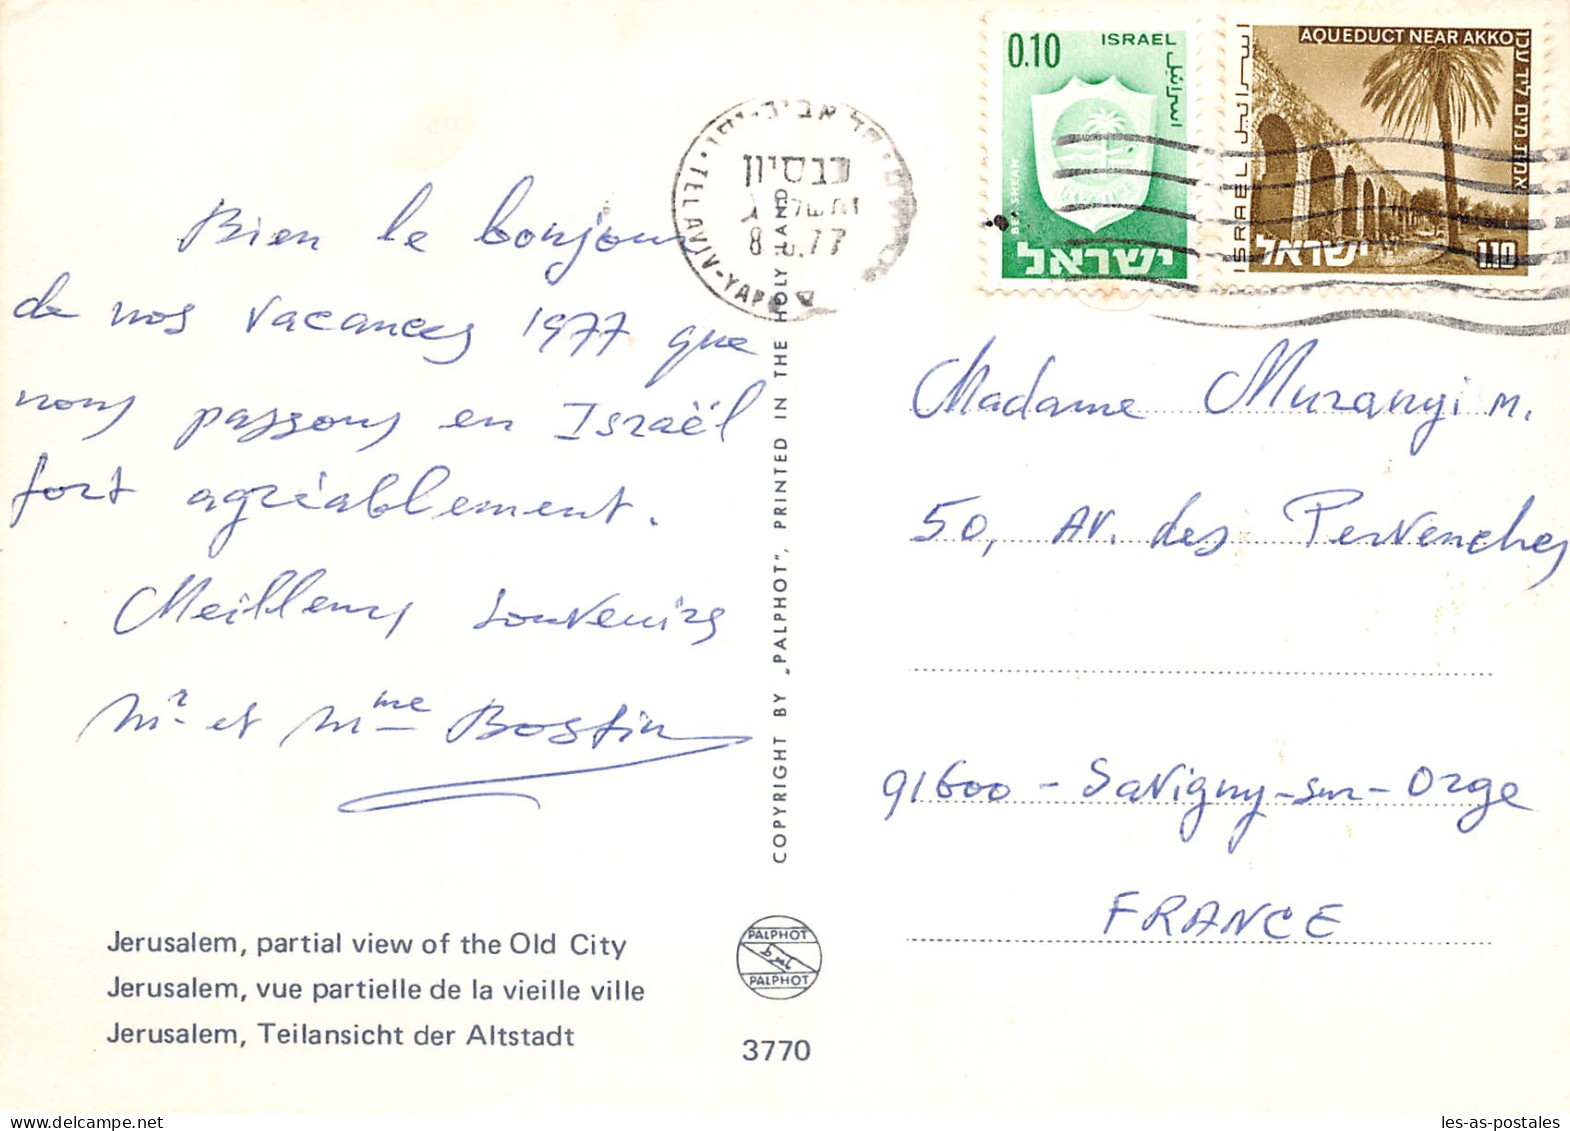 Bien le bonjour
de nos vacances 1977 que
nous passons en Israël
fort agréablement.
Meilleurs souvenirs
Mr et Mme Bostin
Jerusalem, partial view of the Old City
Jerusalem, vue partielle de la vieille ville
Jerusalem, Teilansicht der Altstadt
COPYRIGHT BY „PALPHOT", PRINTED IN THE HOLY LAND
PALPHOT
PALPHOT
3770
תל אביב-יפו
TEL AVIV-YAFO
כבסיון
8 77
0.10
ISRAEL
اسرائيل
BET SHEAN
ישראל
AQUEDUCT NEAR AKKO
אמת המים ליד עכו
اسرائيل
ISRAEL
ישראל
1.10
Madame Muranyi M.
50, Av. des Pervenches
91600 - Savigny-sur-Orge
FRANCE
les-as-postales